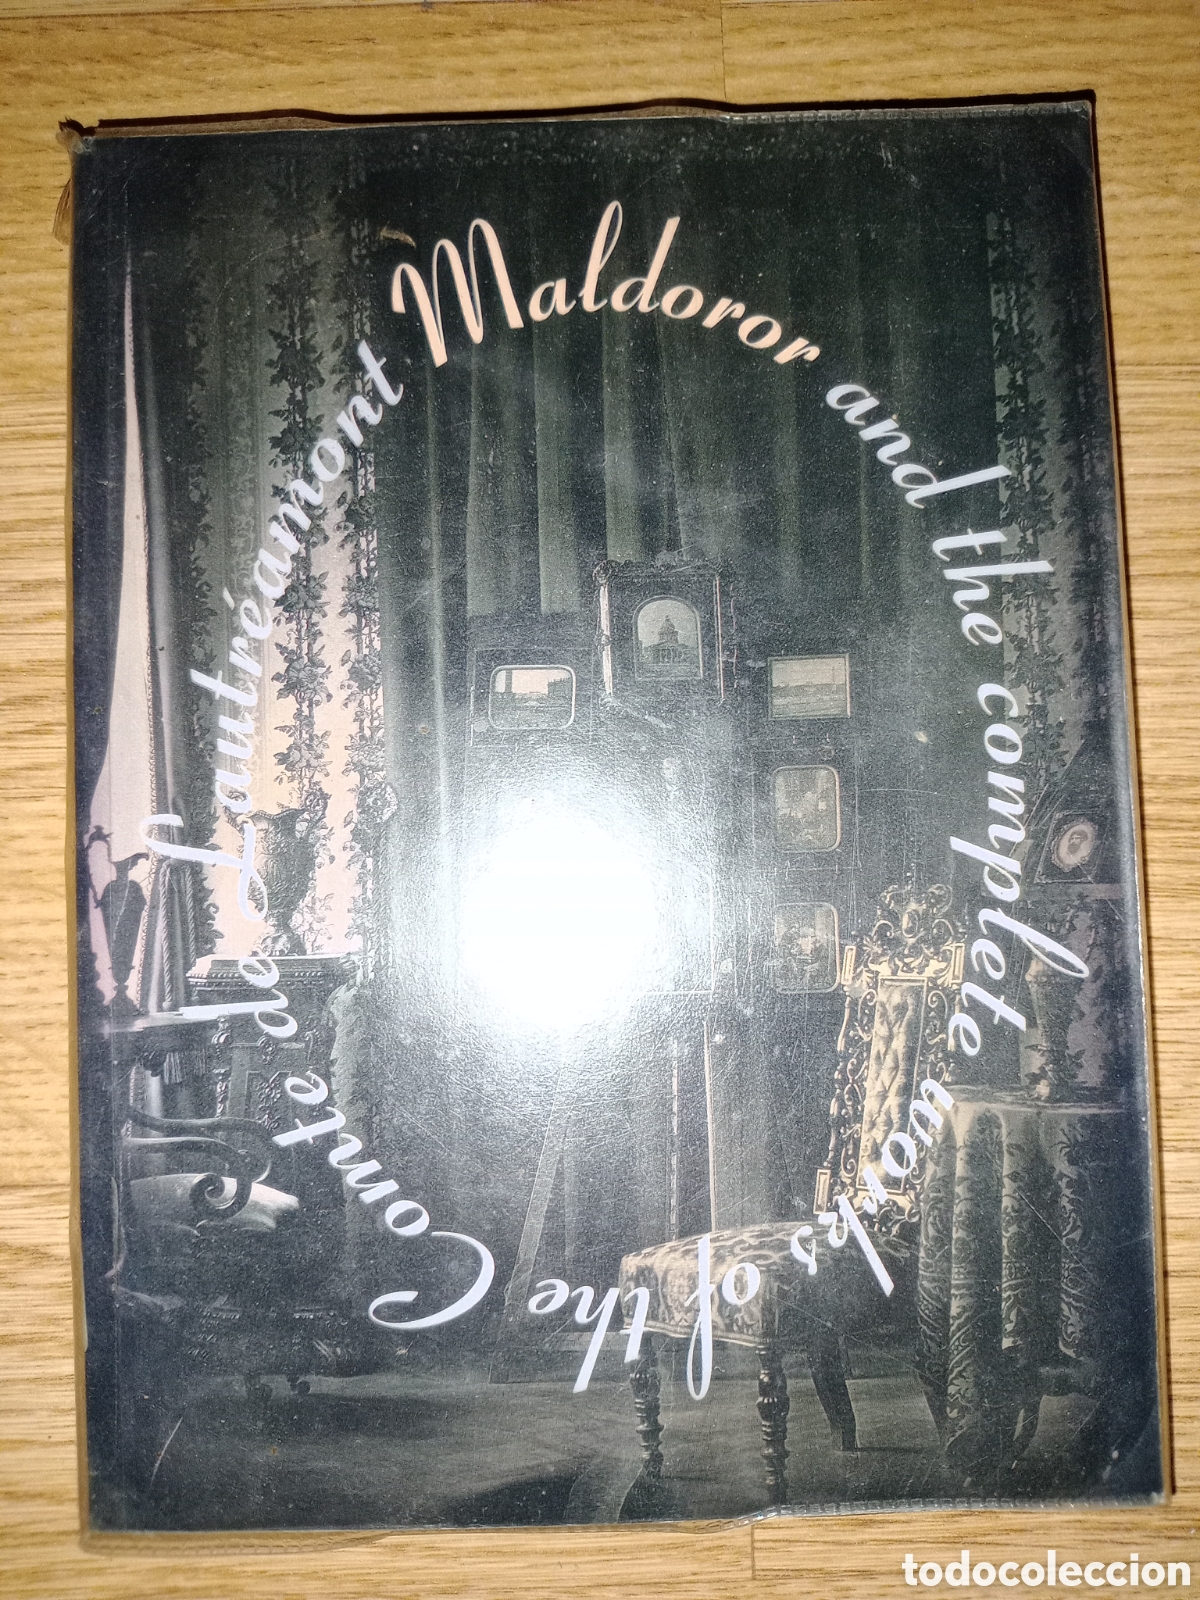 Maldoror and the complete works of the Comte de Lautréamont
todocoleccion